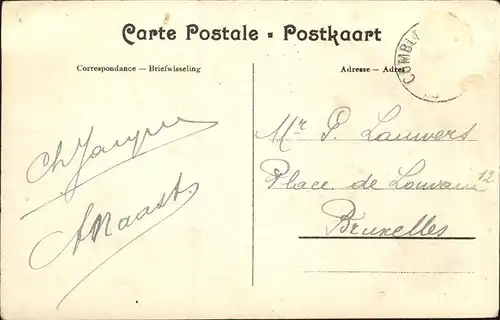 Carte Postale - Postkaart
Correspondance — Briefwisseling
Adresse — Adres
COMBLA
Mr P. Lauwers
Place de Louvain 12
Bruxelles